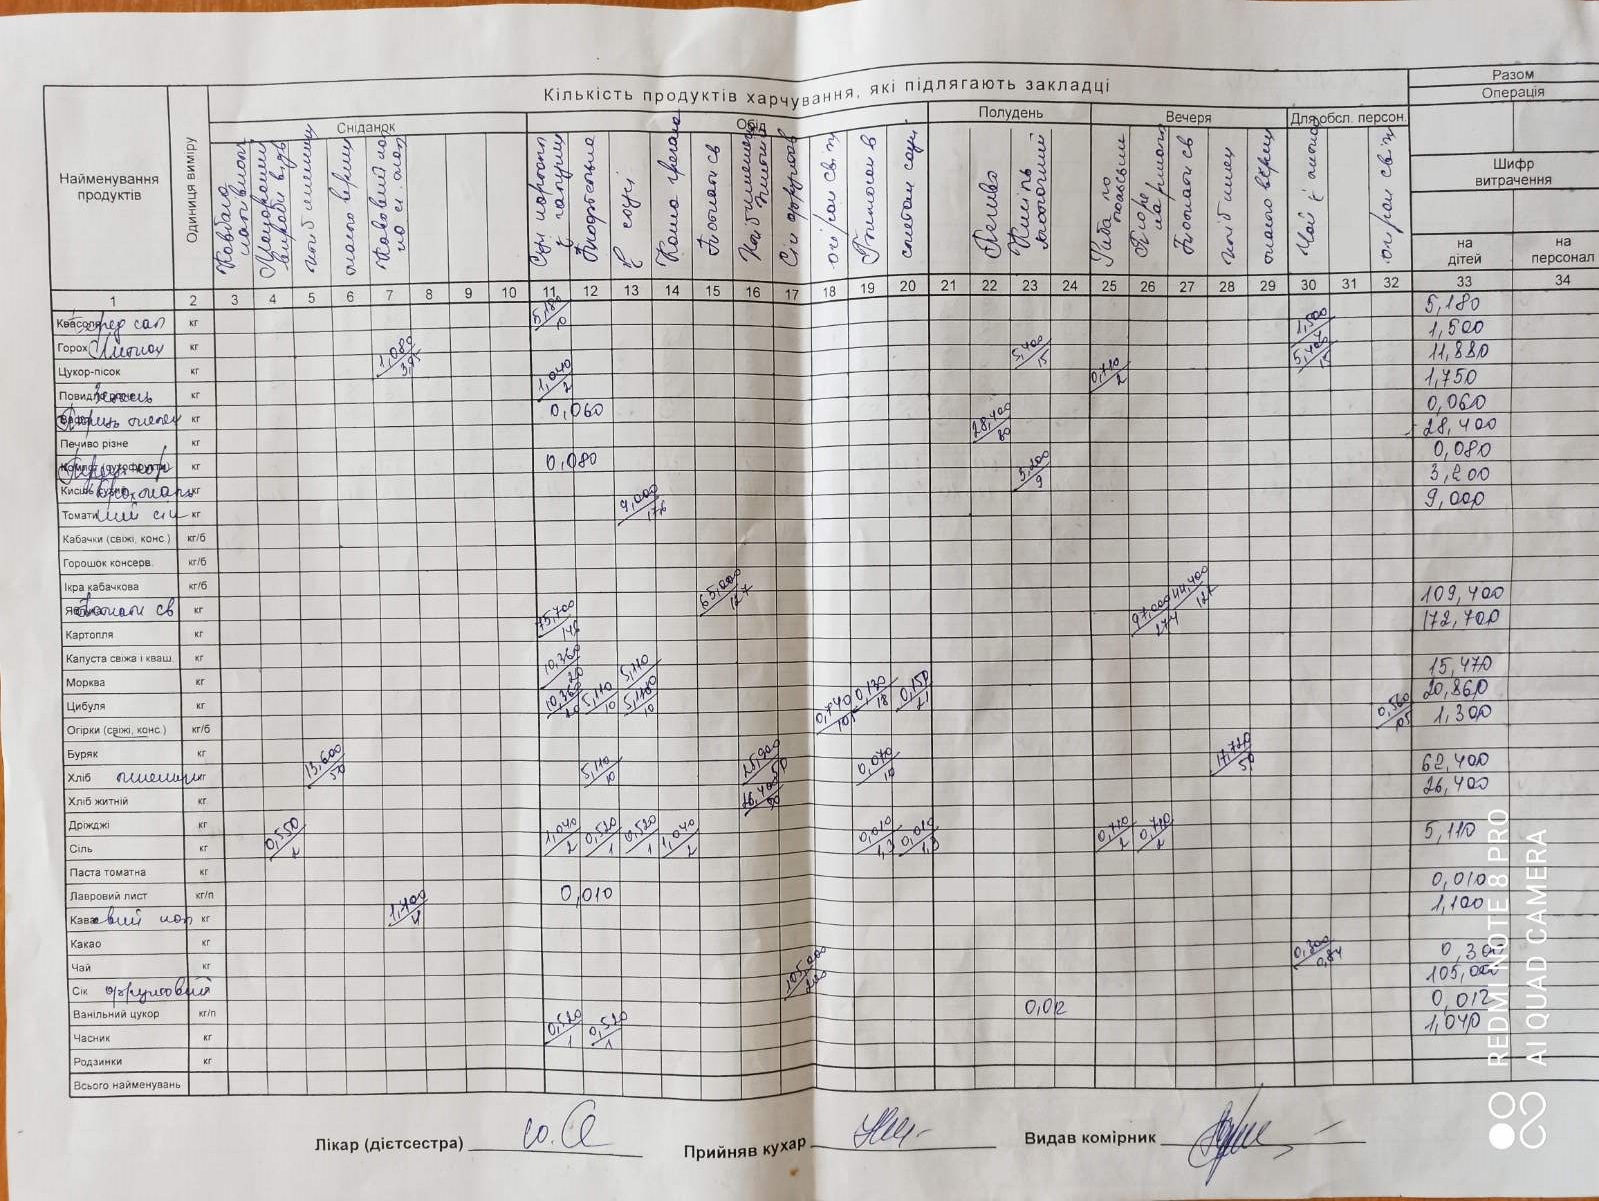 Кількість продуктів харчування, які підлягають закладці
Разом
Операція
Найменування продуктів
Одиниця виміру
Сніданок
Обід
Полудень
Вечеря
Для обсл. персон.
Шифр витрачення
на дітей
на персонал
хліб пшенич
Кава
Суп
Каша гречана
Томати св
огірки св
Печиво
Кисіль
Риба по
Пюре
Томати св
хліб пшен
масло верш
Чай з лимон
огірки св
1 2 3 4 5 6 7 8 9 10 11 12 13 14 15 16 17 18 19 20 21 22 23 24 25 26 27 28 29 30 31 32 33 34
Квасоля кг 5,180/10 5,180
Горох Лимон кг 1,500 1,500
Цукор-пісок кг 1,080 5,400/15 5,400/15 11,880
Повидло кг 1,040/2 0,710/2 1,750
кг 0,060 0,060
Печиво різне кг 28,400/80 28,400
кг 0,080 0,080
Кисіль кг 3,200/9 3,200
Томатний сік кг 9,000/176 9,000
Кабачки (свіжі, конс.) кг/б
Горошок консерв. кг/б
Ікра кабачкова кг/б
Томати св кг 65,000/127 44,400/127 109,400
Картопля кг 75,700 97,000/274 172,700
Капуста свіжа і кваш. кг
Морква кг 10,360/20 5,110 15,470
Цибуля кг 10,360/20 5,110/10 5,110/10 20,860
Огірки (свіжі, конс.) кг/б 0,740/105 0,130/18 0,150/21 0,560/105 1,300
Буряк кг
Хліб пшенич кг 13,600/50 5,110/10 25,900/50 0,070/10 17,720/50 62,400
Хліб житній кг 26,400/50 26,400
Дріжджі кг
Сіль кг 0,550/2 1,040/2 0,520/1 0,520/1 1,040/2 0,010/1,3 0,010/1,3 0,710/2 0,710/2 5,110
Паста томатна кг
Лавровий лист кг/п 0,010 0,010
Кавовий нап кг 1,100/4 1,100
Какао кг
Чай кг 0,300/0,84 0,300
Сік фруктовий кг 105,000/200 105,000
Ванільний цукор кг/п 0,012 0,012
Часник кг 0,520/1 0,520/1 1,040
Родзинки кг
Всього найменувань
Лікар (дієтсестра)
Прийняв кухар
Видав комірник
REDMI NOTE 8 PRO
AI QUAD CAMERA